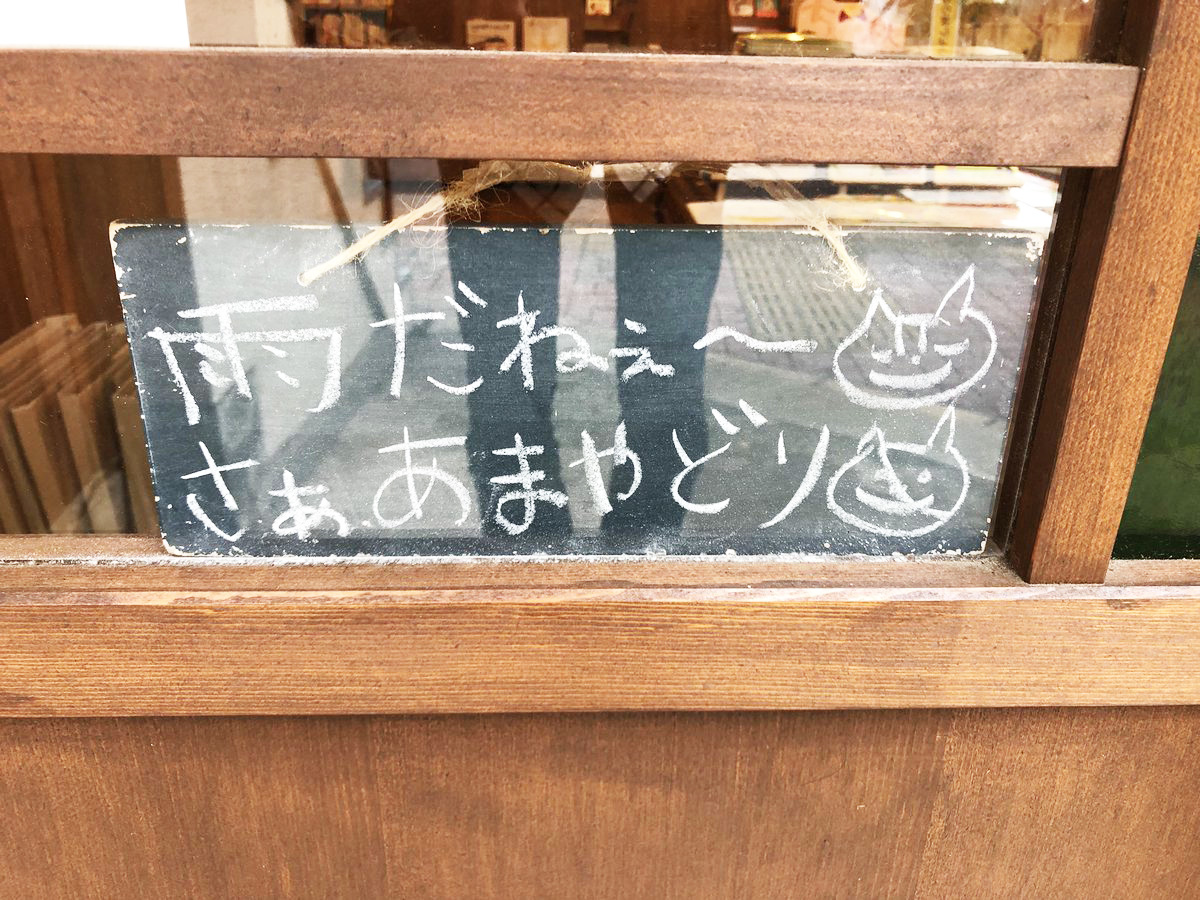 雨だねぇ〜
さぁあまやどり